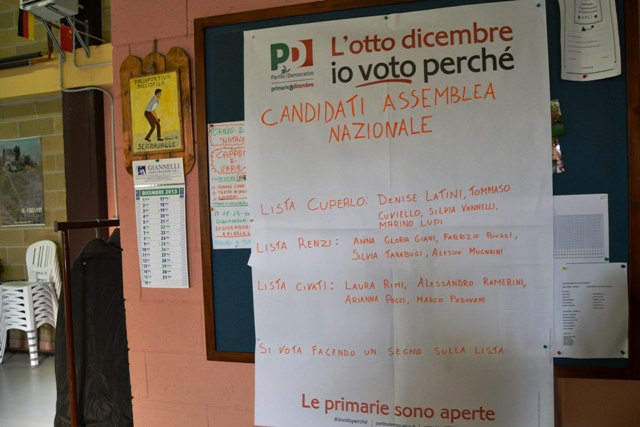 POLISPORTIVA
BOCCIOFILA
SERRAVALLE
GIANNELLI
DICEMBRE 2013
NATALE
PD
Partito Democratico
primarie8dicembre
L'otto dicembre
io voto perché
CANDIDATI ASSEMBLEA
NAZIONALE
LISTA CUPERLO: DENISE LATINI, TOMMASO
CUVIELLO, SILVIA VANNELLI,
MARINO LUPI
LISTA RENZI: ANNA GLORIA GIANI, FABRIZIO
SILVIA TARABUGI, ALESSIO MUGNAINI
LISTA CIVATI: LAURA RIMI, ALESSANDRO RAMERINI,
ARIANNA POCCI, MARCO PADOVANI
SI VOTA FACENDO UN SEGNO SULLA LISTA
Le primarie sono aperte
#iovotoperché